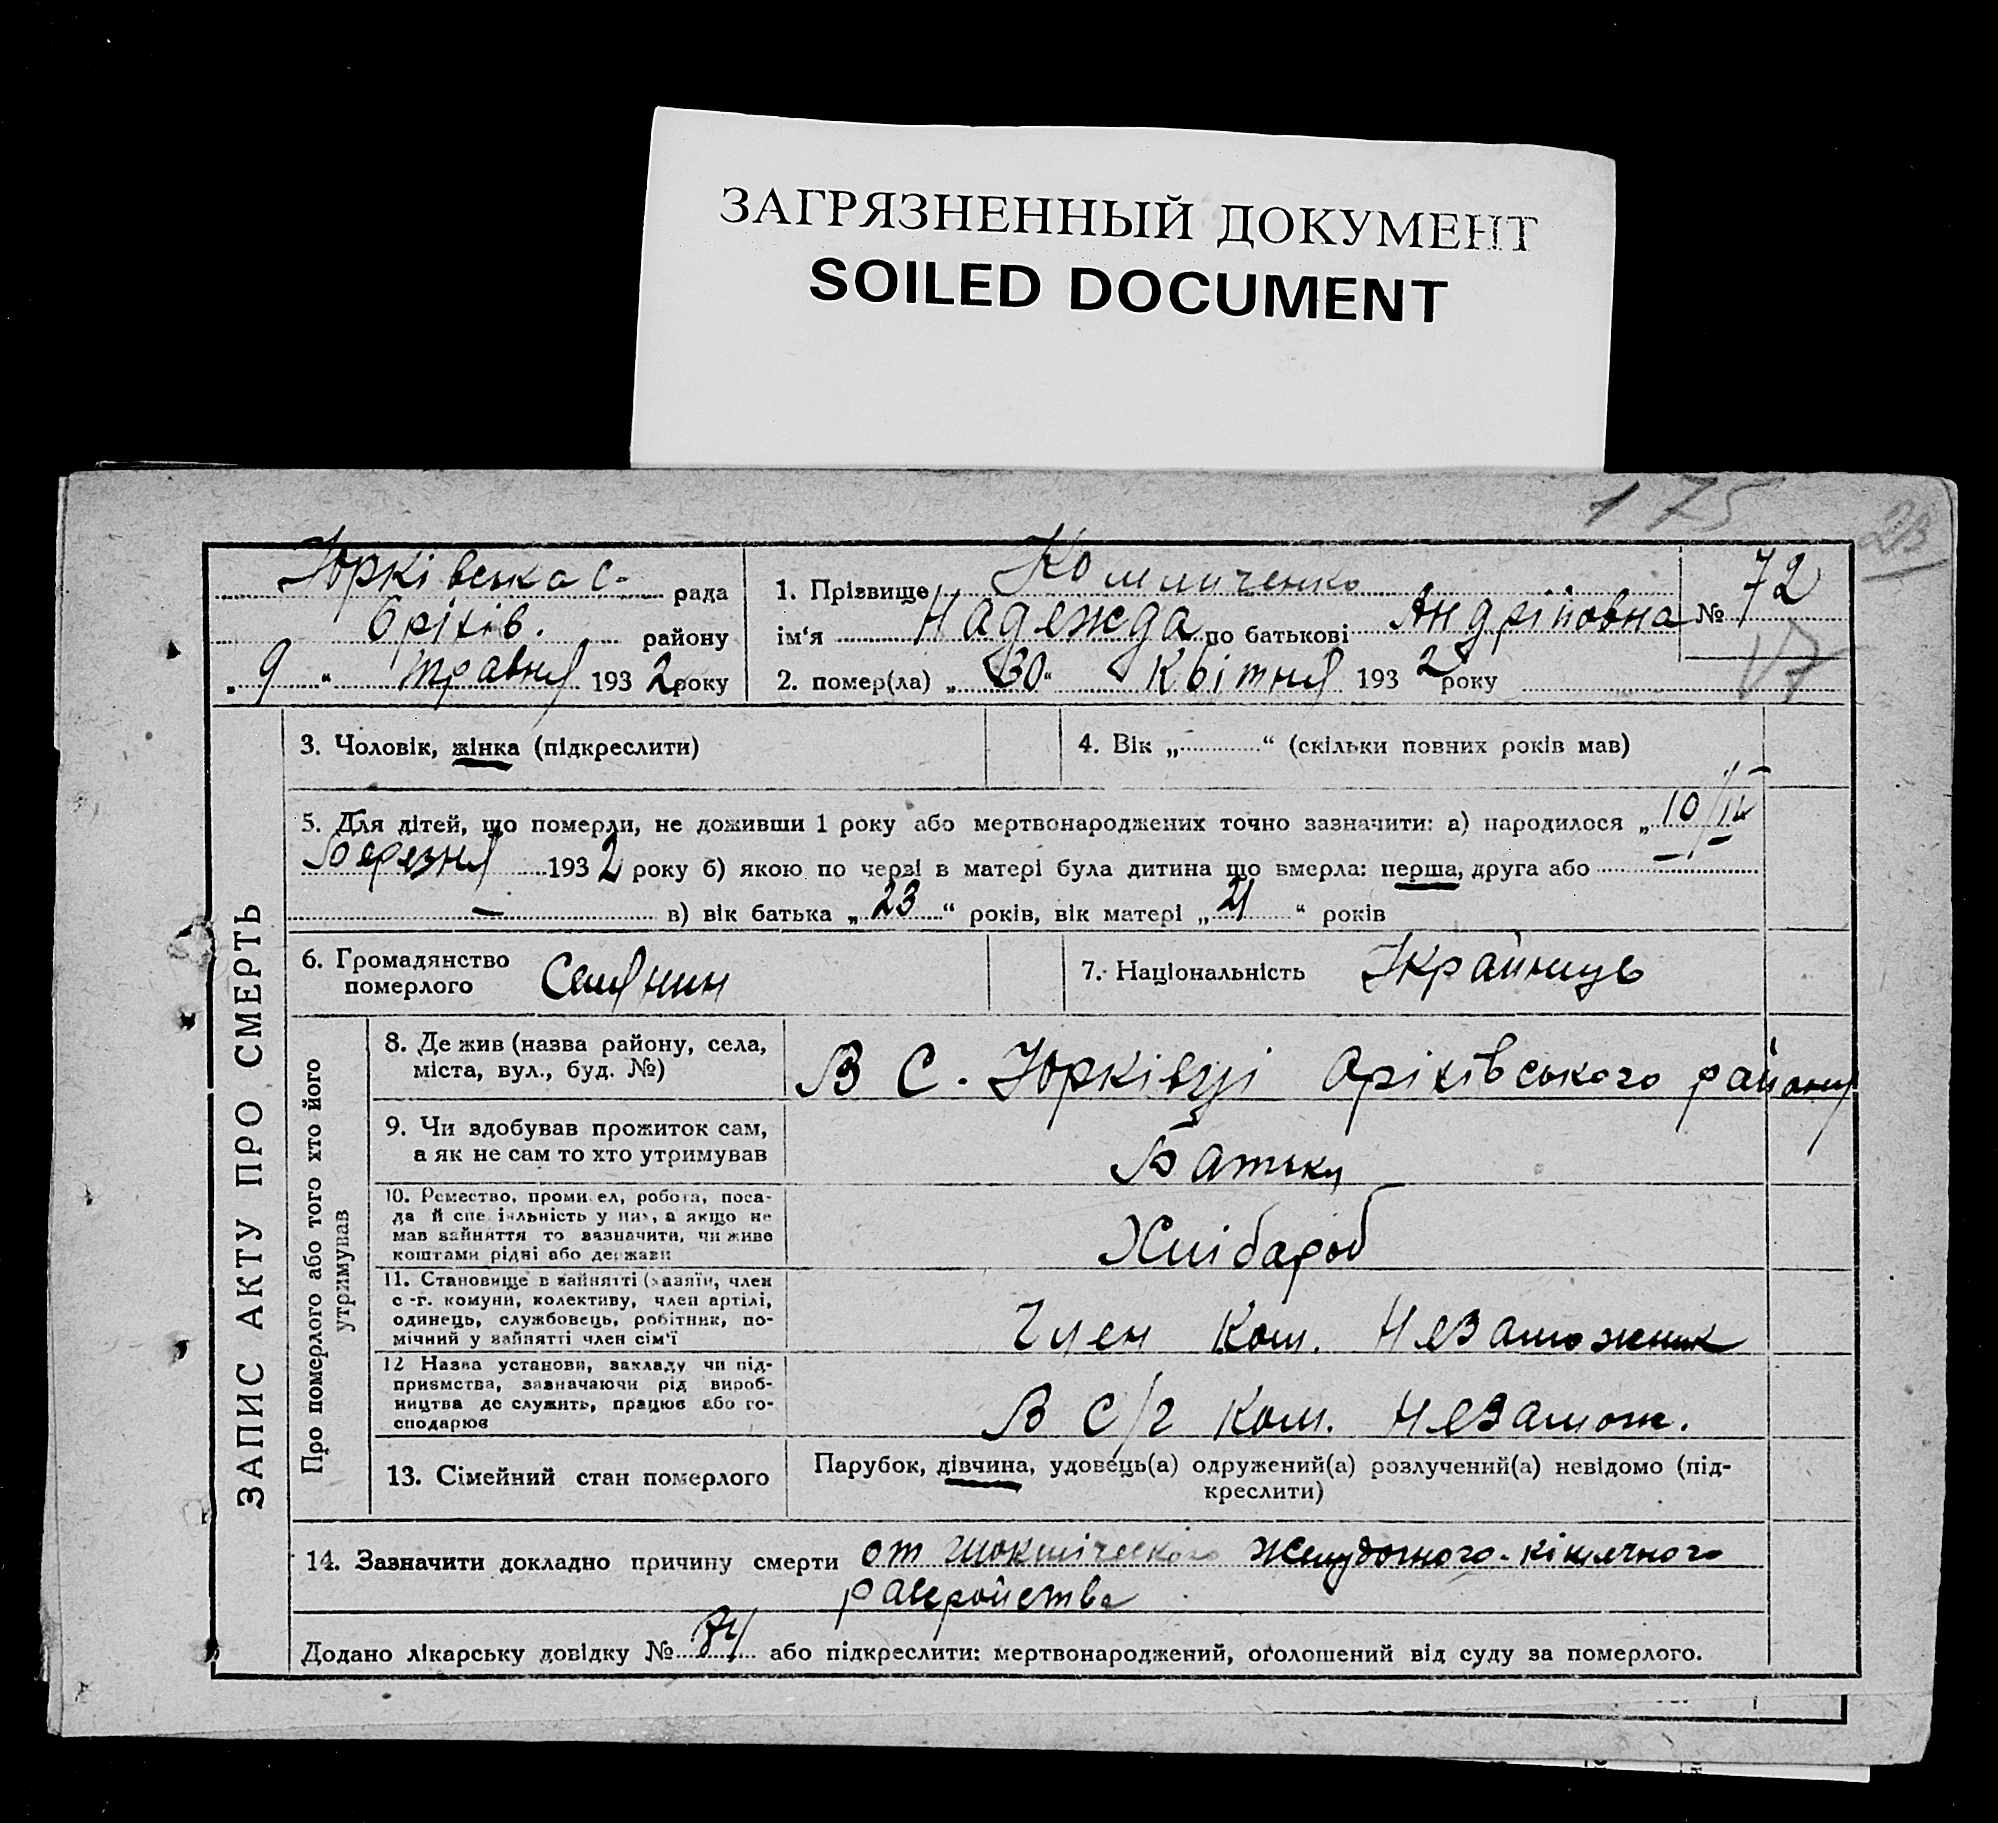 ЗАГРЯЗНЕННЫЙ ДОКУМЕНТ
SOILED DOCUMENT
175
23
Юрківська с. рада
Оріхів. району
„ 9 “ травня 1932 року
1. Прізвище
ім‘я Надежда по батькові Андріповна
2. помер(ла) „ 30 “ Квітня 1932 року
№ 72
17
ЗАПИС АКТУ ПРО СМЕРТЬ
3. Чоловік, жінка (підкреслити)
4. Вік „ “ (скільки повних років мав)
5. Для дітей, що померли, не доживши 1 року або мертвонароджених точно зазначити: а) народилося „ 10/III
Березня 1932 року б) якою по черзі в матері була дитина що вмерла: перша, друга або —
— в) вік батька „ 23 “ років, вік матері „ 21 “ років
6. Громадянство
померлого Селянин
7. Національність Украйнців
Про померлого або того хто його
утримував
8. Де жив (назва району, села,
міста, вул., буд. №)
В С. Юрківці Оріхівського району
9. Чи здобував прожиток сам,
а як не сам то хто утримував
Батьку
10. Ремество, промисел, робота, поса-
да й спеціяльність у них, а якщо не
мав зайняття то зазначити, чи живе
коштами рідні або держави
Хлібароб
11. Становище в зайнятті (хазяїн, член
с.-г. комуни, колективу, член артілі,
одинець, службовець, робітник, по-
мічний у зайнятті член сім‘ї
Член Ком. Незаможник
12 Назва установи, закладу чи під-
приємства, зазначаючи рід вироб-
ництва де служить, працює або го-
сподарює
В С/г Ком. Незамож.
13. Сімейний стан померлого
Парубок, дівчина, удовець(а) одружений(а) розлучений(а) невідомо (під-
креслити)
14. Зазначити докладно причину смерти от желудочного-кишечного
расройства
Додано лікарську довідку № або підкреслити: мертвонароджений, оголошений від суду за померлого.